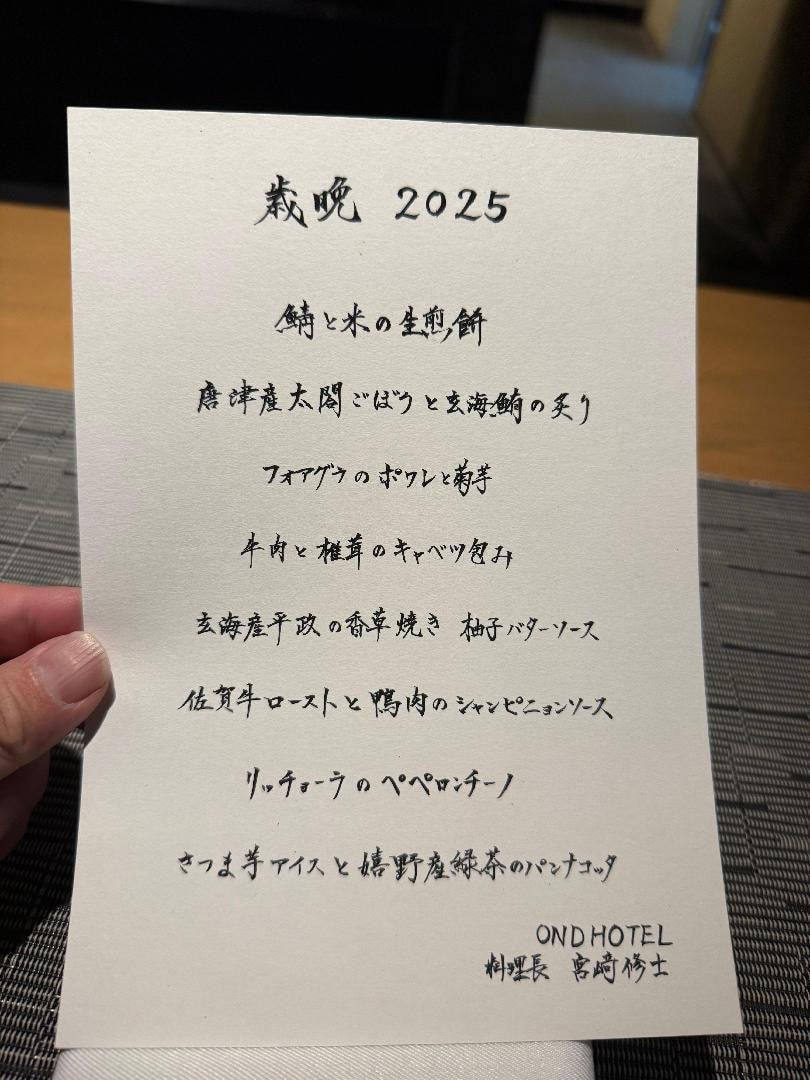 歳晩 2025
鯖と米の生煎餅
唐津産太閤ごぼうと玄海鮪の炙り
フォアグラのポワレと菊芋
牛肉と椎茸のキャベツ包み
玄海産平政の香草焼き 柚子バターソース
佐賀牛ローストと鴨肉のシャンピニョンソース
リッチョーラのペペロンチーノ
さつま芋アイスと嬉野産緑茶のパンナコッタ
OND HOTEL
料理長 宮崎修士